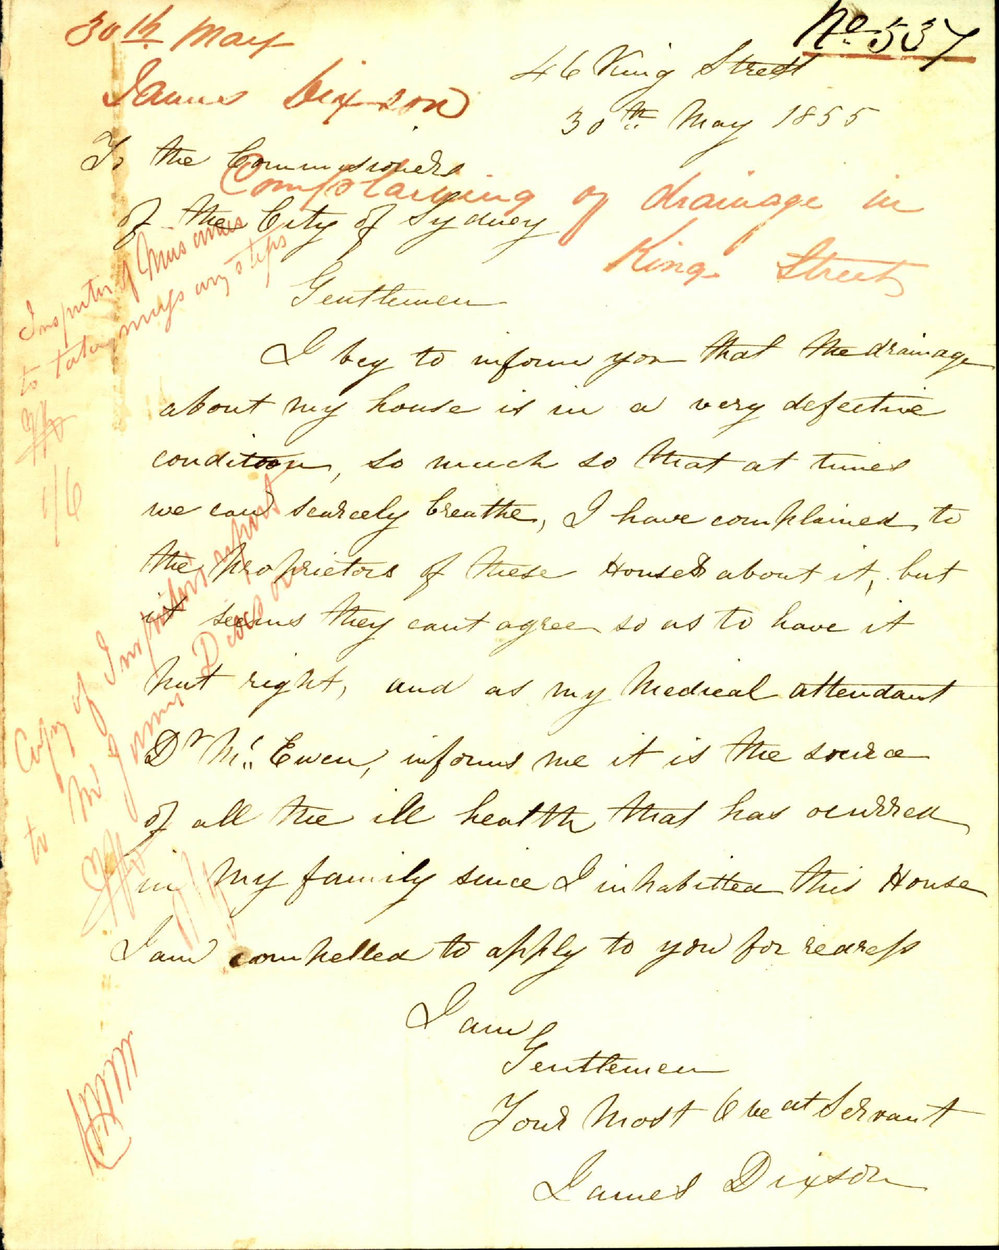 30th May
James Dixson
No. 537
46 King Street
30th May 1855
To the Commissioners
of the City of Sydney
Complaining of drainage in
King Street
Gentlemen
I beg to inform you that the drainage
about my house is in a very defective
condition, so much so that at times
we can scarcely breathe, I have complained to
the proprietors of these Houses about it, but
it seems they cant agree so as to have it
put right, and as my Medical attendant
Dr Mc. Ewen, informs me it is the source
of all the ill health that has occurred
in my family since I inhabitted this House
I am compelled to apply to you for redress
I am
Gentlemen
Your Most Obeat Servant
James Dixson
Inspector of Nuisances
to take necessy steps
1/6
Copy of Inspector's report
to Mr James Dixson